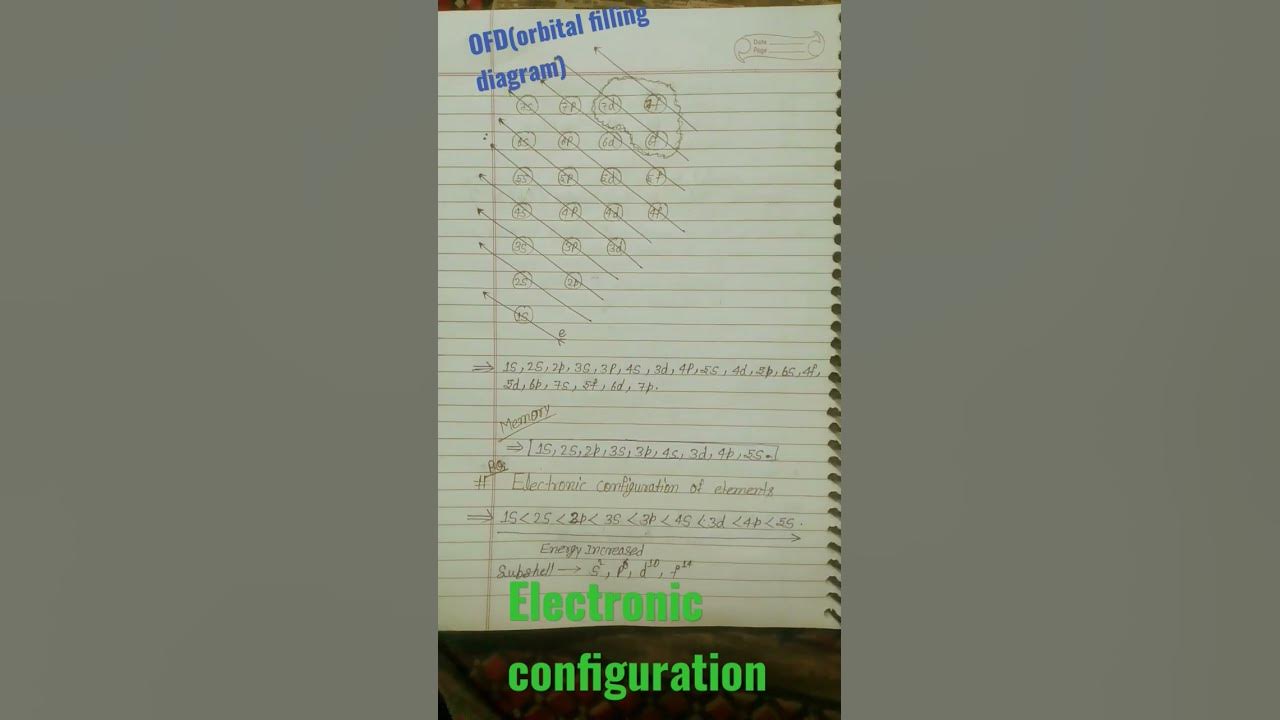 OFD(orbital filling
diagram)
Date
Page
7s 7p 7d 7f
6s 6p 6d 6f
5s 5p 5d 5f
4s 4p 4d 4f
3s 3p 3d
2s 2p
1s
e
⇒ 1s, 2s, 2p, 3s, 3p, 4s, 3d, 4p, 5s, 4d, 5p, 6s, 4f,
5d, 6p, 7s, 5f, 6d, 7p.
Memory
⇒ 1s, 2s, 2p, 3s, 3p, 4s, 3d, 4p, 5s.
# Electronic configuration of elements
⇒ 1s < 2s < 2p < 3s < 3p < 4s < 3d < 4p < 5s.
Energy Increased
Subshell → s², p⁶, d¹⁰, f¹⁴
Electronic
configuration